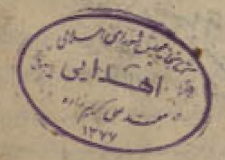 کتابخانه مجلس شورای اسلامی
اهدایی
مهندس کریم زاده
۱۳۷۷